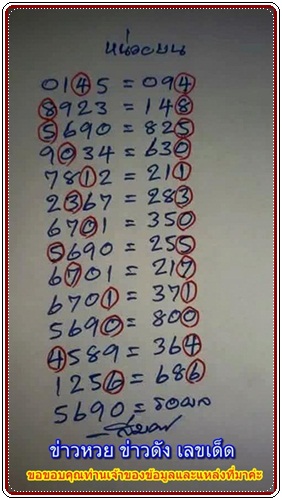 หน่วยบน
0145 = 094
8923 = 148
5690 = 825
9034 = 630
7812 = 211
2367 = 283
6701 = 350
5690 = 255
6701 = 217
6701 = 371
5690 = 800
4589 = 364
1256 = 686
5690 = รอผล
ข่าวหวย ข่าวดัง เลขเด็ด
ขอขอบคุณท่านเจ้าของข้อมูลและแหล่งที่มาค่ะ